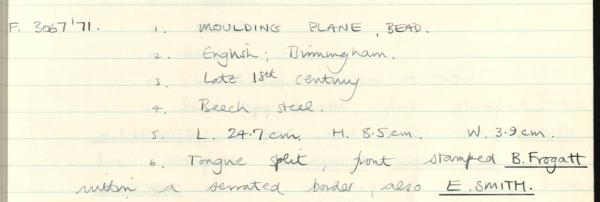 F. 3067'71. 1. MOULDING PLANE, BEAD.
2. English; Birmingham.
3. Late 18th century
4. Beech, steel.
5. L. 24.7cm. H. 8.5cm. W. 3.9cm.
6. Tongue split, front stamped B. Frogatt
within a serrated border, also E. SMITH.